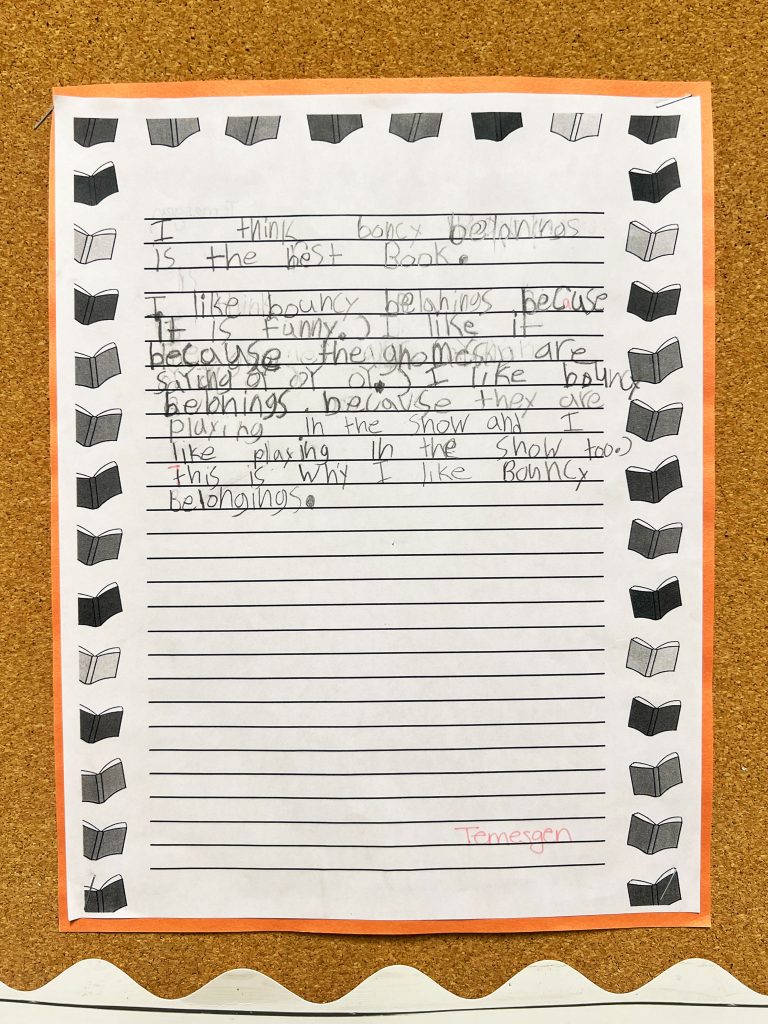 I think boncy belonings
is the best Book.
I like bouncy belonings because
it is funny. I like it
because the gnomes are
saying or or or. I like bouncy
belonings. because they are
plaxing in the snow and I
like plaxing in the snow too.
This is why I like Bouncy
Belongings.
Temesgen